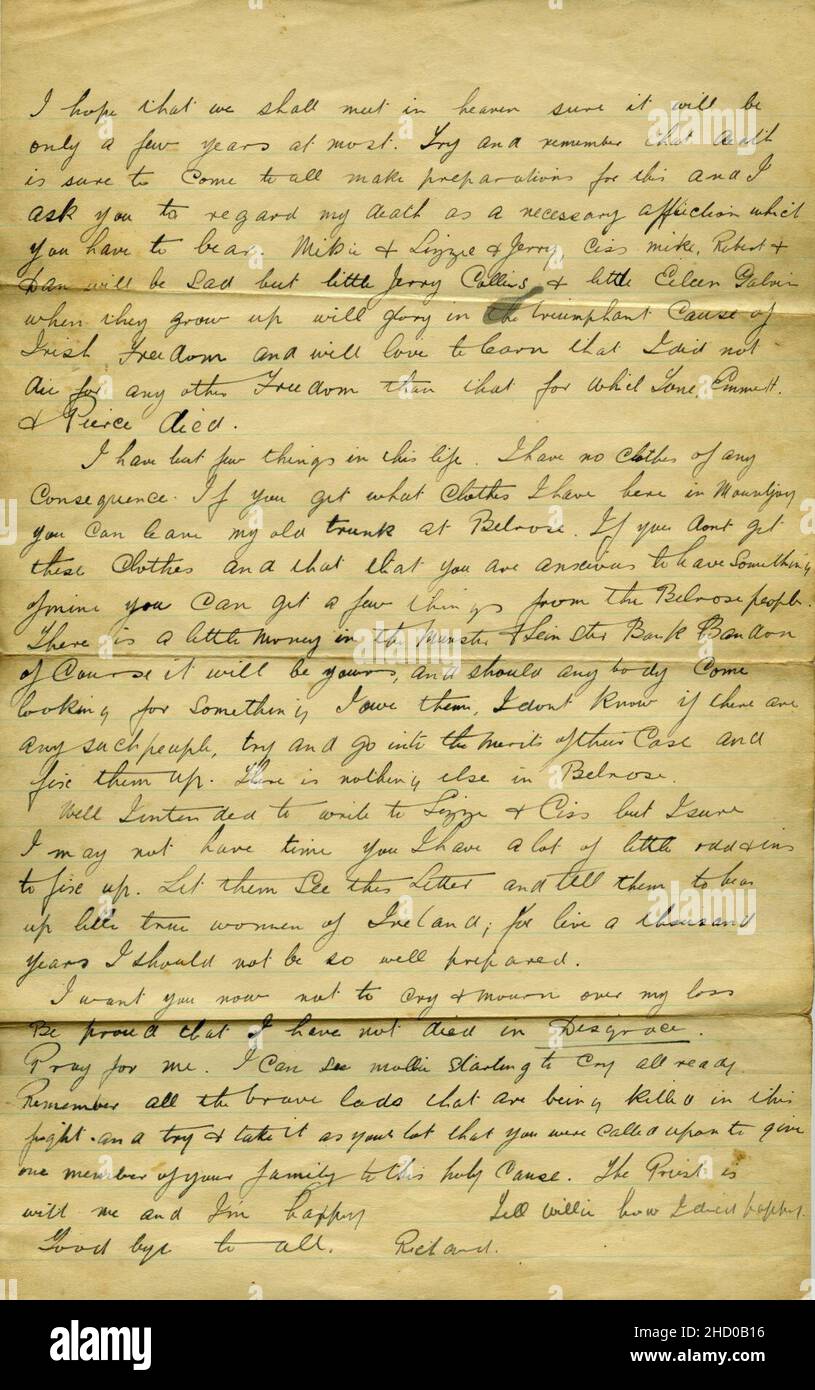 I hope that we shall meet in heaven sure it will be
only a few years at most. Try and remember that death
is sure to come to all make preparations for this and I
ask you to regard my death as a necessary affliction which
you have to bear. Mikie & Lizzie & Jerry, Ciss mike, Robert &
Dan will be sad but little Jerry Collins & little Eileen Galvin
when they grow up will glory in the triumphant cause of
Irish Freedom and will love to learn that I did not
die for any other Freedom than that for which Tone, Emmett.
& Pierce died.
I have but few things in this life. I have no clothes of any
consequence. If you get what clothes I have here in Mountjoy
you can leave my old trunk at Belrose. If you dont get
these clothes and that that you are anxious to have something
of mine you can get a few things from the Belrose people.
There is a little money in the Munster & Leinster Bank Bandon
of course it will be yours, and should any body come
looking for something I owe them, I dont know if there are
any such people, try and go into the merits of their case and
fixe them up. There is nothing else in Belrose.
Well I intended to write to Lizzie & Ciss but I sure
I may not have time you I have a lot of little odd & ins
to fixe up. Let them see this Letter and tell them to bear
up like true women of Ireland; for live a thousand
years I should not be so well prepared.
I want you now not to cry & mourn over my loss
Be proud that I have not died in Desgrace.
Pray for me. I can see mollie starting to cry all ready
Remember all the brave lads that are being killed in this
fight. and try & take it as your lot that you were called upon to give
one member of your family to this holy cause. The Priest is
with me and I'm happy Tell Willie how I died happy.
Good bye to all. Richard.
alamy
Image ID: 2HD0B16
www.alamy.com